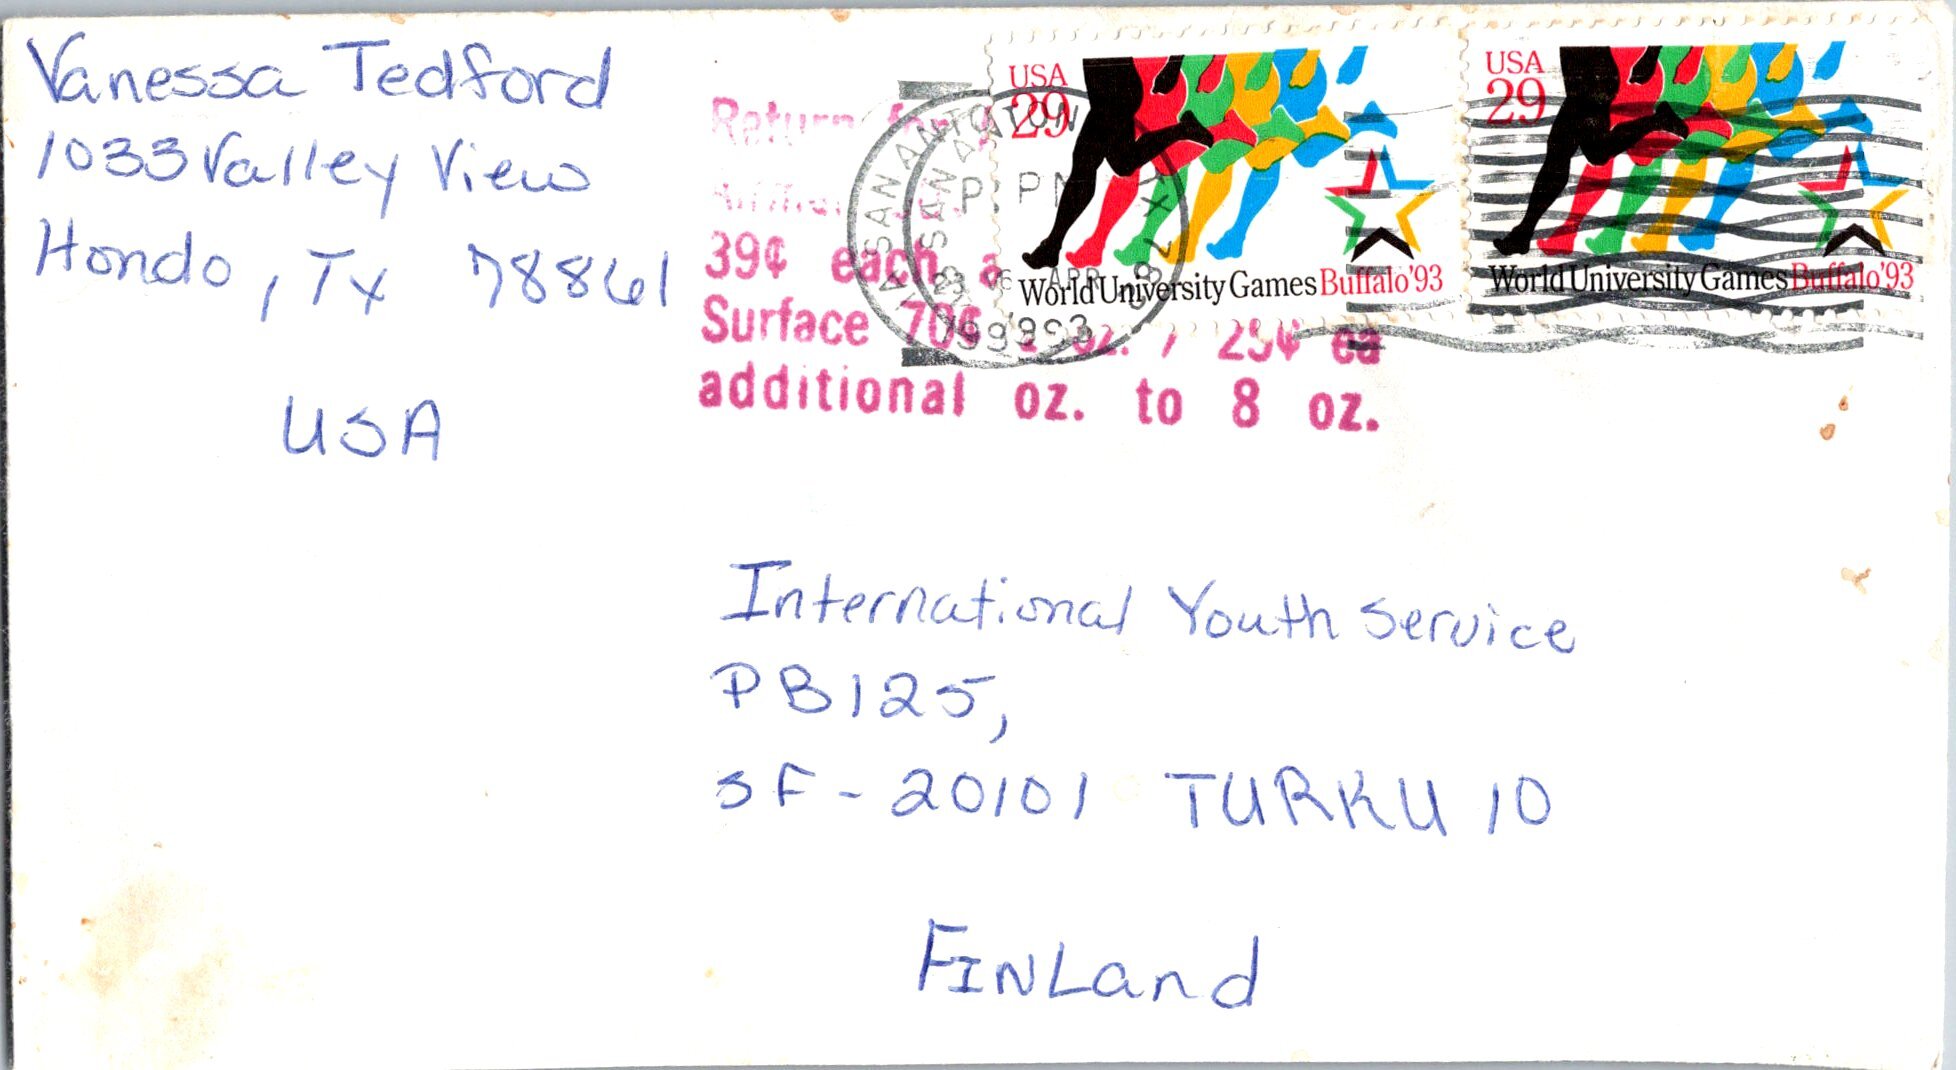 Vanessa Tedford
1033 Valley View
Hondo, Tx 78861
USA
Return for
39¢ each a
Surface 70¢ oz., 25¢ ea
additional oz. to 8 oz.
SAN ANTONIO
SAN ANTON
PM
APR
1993
USA
29
World University Games Buffalo '93
USA
29
World University Games Buffalo '93
International Youth Service
PB125,
SF-20101 TURKU 10
FINLand